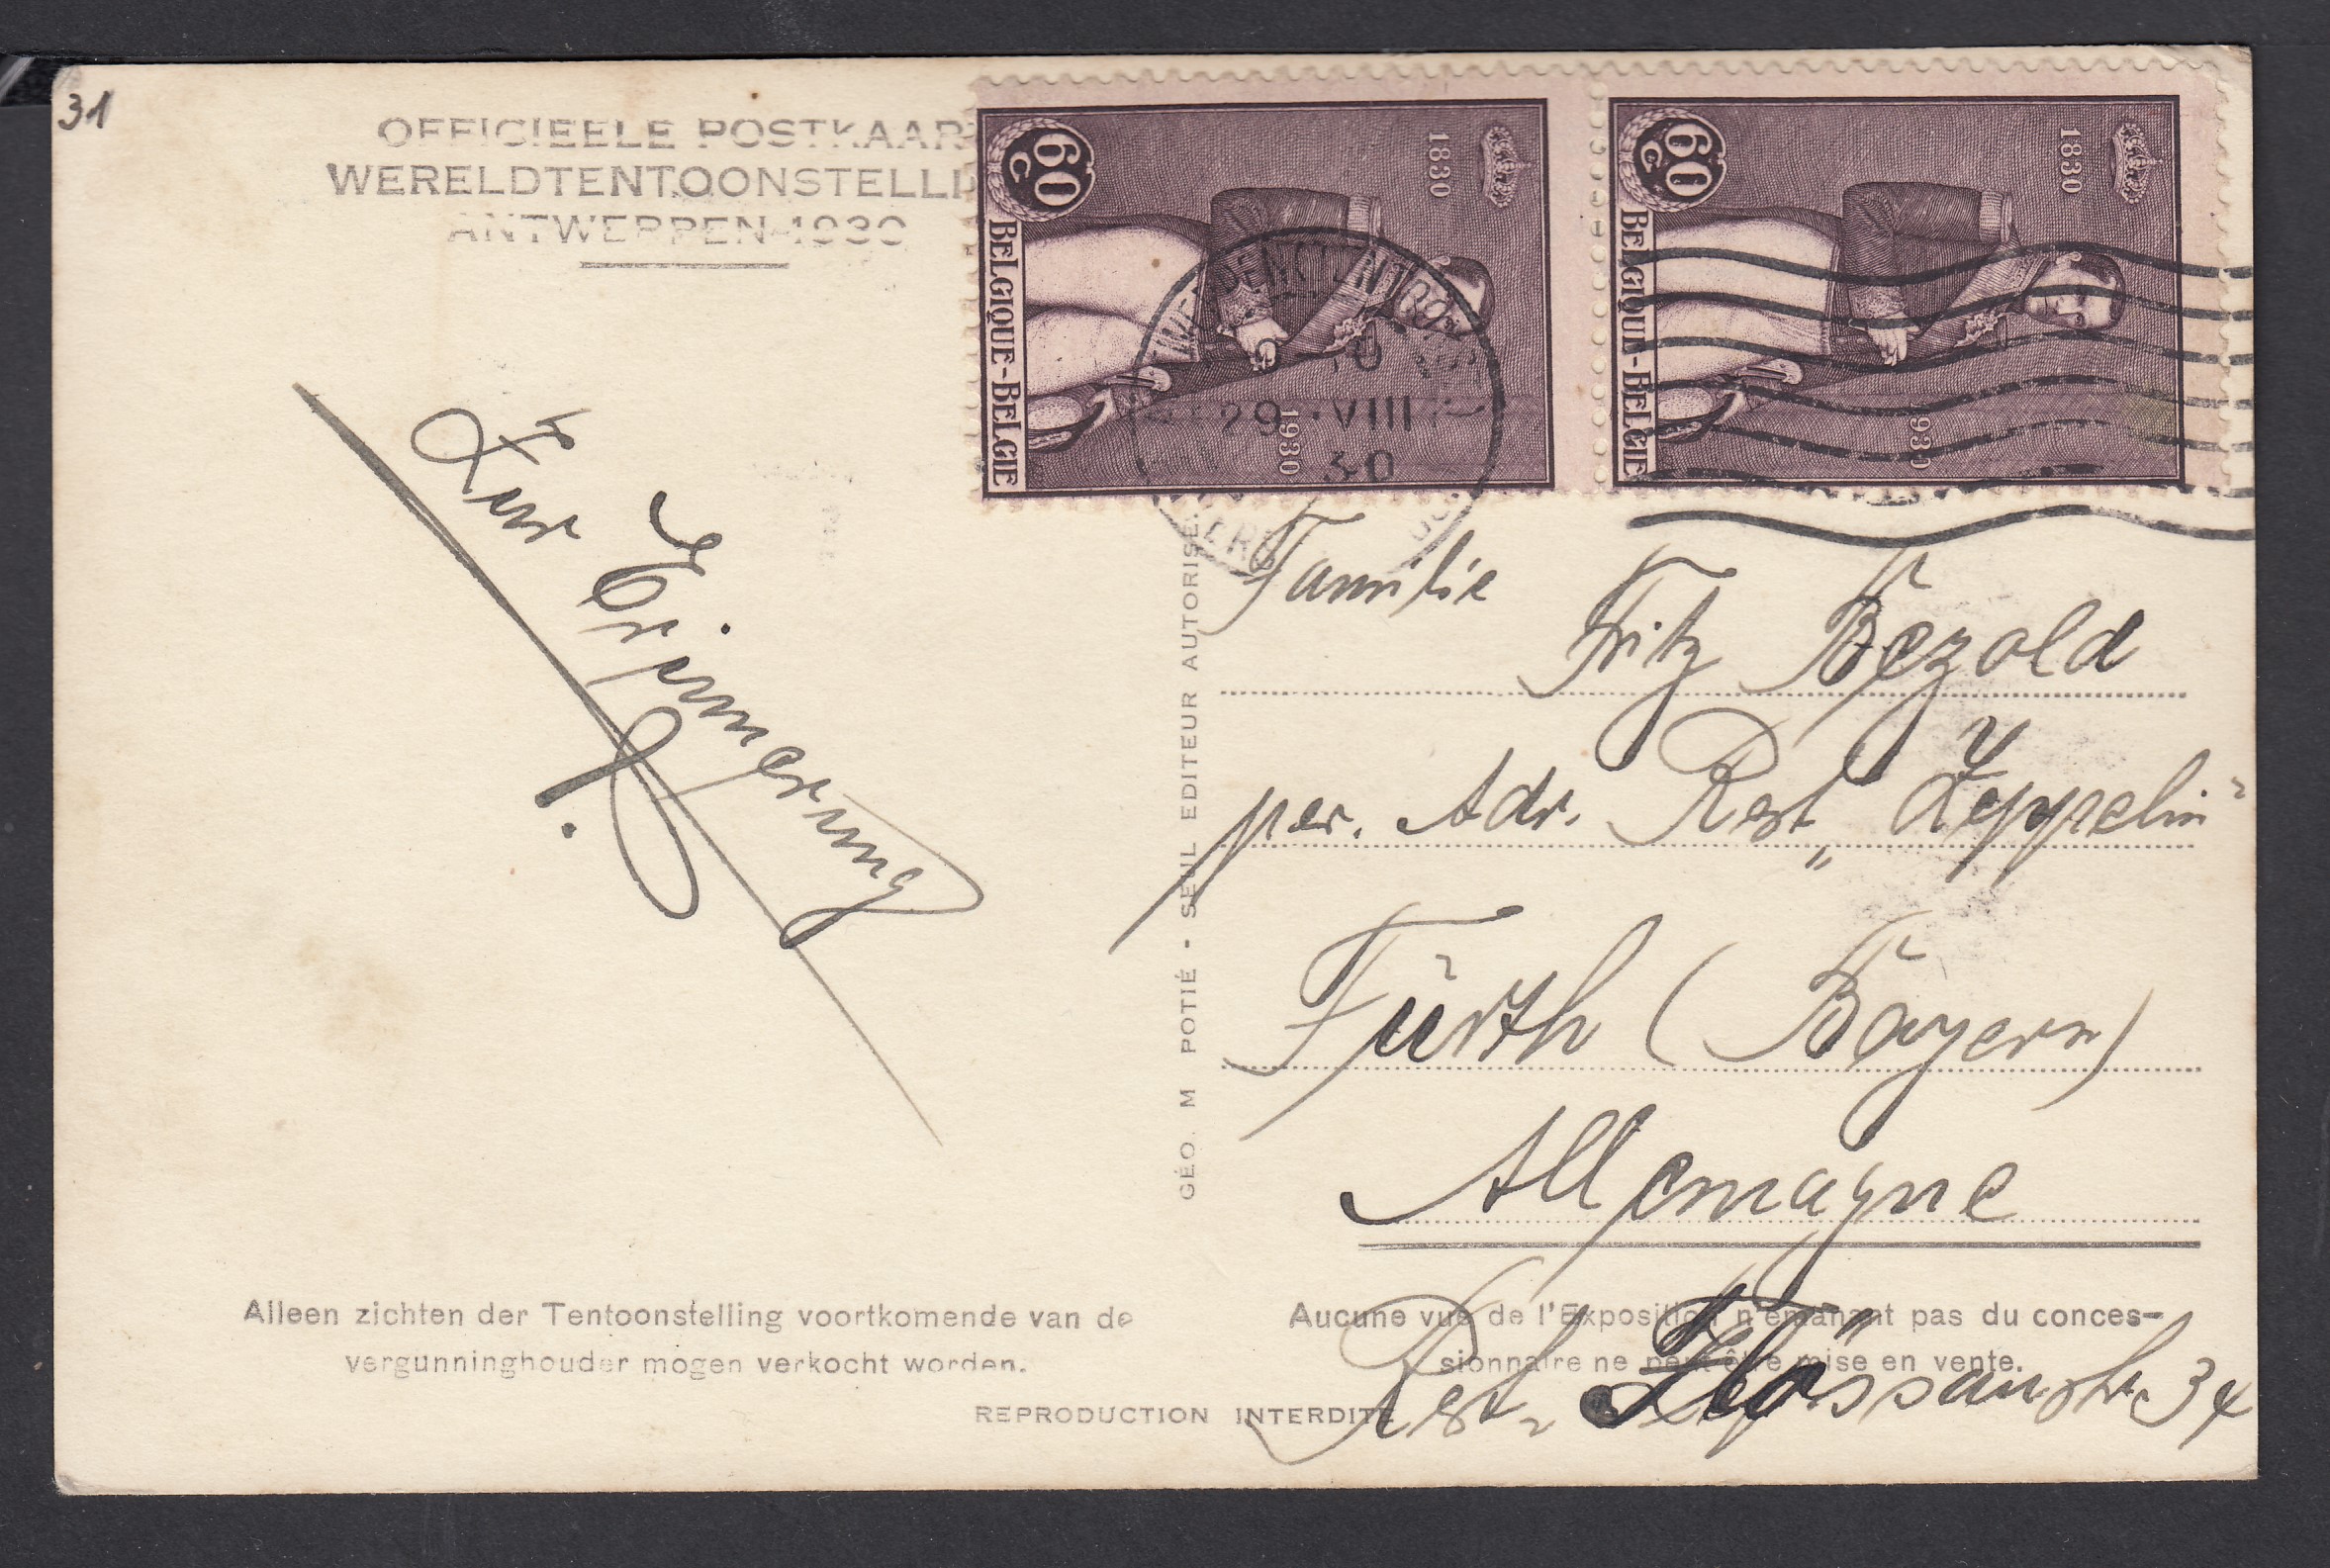 31
OFFICIEELE POSTKAAR
WERELDTENTOONSTELLI
ANTWERPEN-1930
60
C
1830
1930
BELGIQUE-BELGIE
60
C
1830
1930
BELGIQUE-BELGIE
29 VIII
30
Zur
Erinnerung
GÉO. M POTIÉ - SEUL EDITEUR AUTORISÉ.
Familie
Fritz Bezold
per. Adr. Rest „Zeppelin"
Fürth (Bayern)
Allemagne
Flössaustr 34
Alleen zichten der Tentoonstelling voortkomende van de
vergunninghouder mogen verkocht worden.
Aucune vue de l'Exposition n'émanant pas du conces-
sionnaire ne peut être mise en vente.
REPRODUCTION INTERDITE